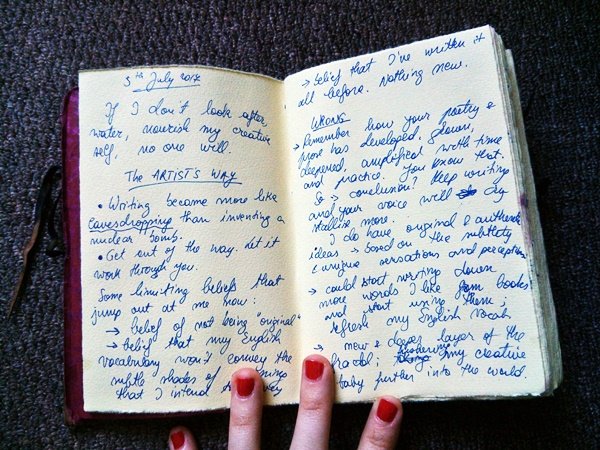 5th July 2012
If I don't look after,
water, nourish my creative
self, no one will.
THE ARTIST'S WAY
• Writing became more like
eavesdropping than inventing a
nuclear bomb.
• Get out of the way. Let it
work through you.
Some limiting beliefs that
jump out at me now:
→ belief of not being "original"
→ belief that my English
vocabulary won't convey the
subtle shades of meaning
that I intend
→ belief that I've written it
all before. Nothing new.
WRONG
→ Remember how your poetry &
prose has developed. Flown,
deepened, amplified with time
and practice. You know that.
So → conclusion? Keep writing
and your voice will cry
stallise more.
I do have original & authentic
ideas → based on the subtlety
& unique sensations and perceptions
→ could start writing down
more words I like from books
and start using them;
refresh my English vocab
→ new & deeper layer of the
fractal; my creative
baby further into the world.